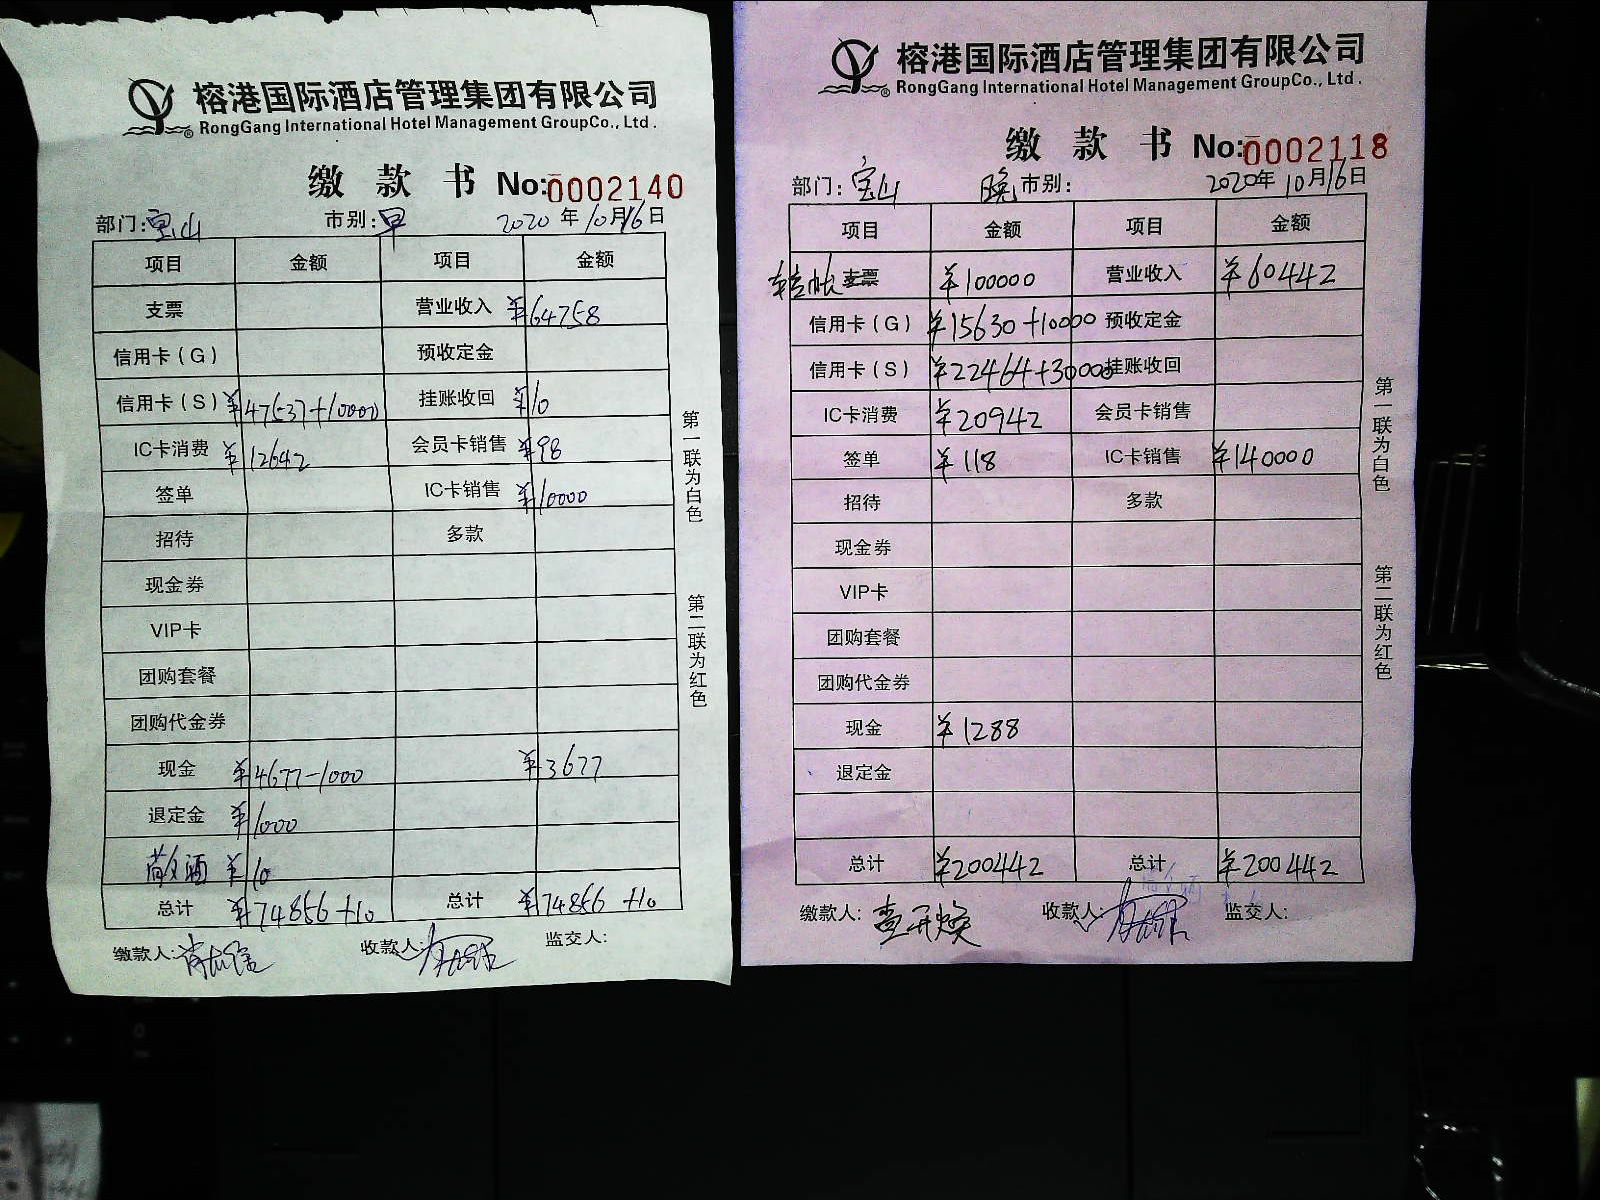 榕港国际酒店管理集团有限公司
RongGang International Hotel Management GroupCo., Ltd.
缴 款 书 No:0002140
部门:宝山 市别:早 2020年10月16日
项目 金额 项目 金额
支票 营业收入 ¥64758
信用卡(G) 预收定金
信用卡(S) ¥47537+10000 挂账收回 ¥10
IC卡消费 ¥12642 会员卡销售 ¥98
签单 IC卡销售 ¥10000
招待 多款
现金券
VIP卡
团购套餐
团购代金券
现金 ¥4677-1000 ¥3677
退定金 ¥1000
散酒 ¥10
总计 ¥74856+10 总计 ¥74856+10
缴款人: 收款人: 监交人:
第一联为白色 第二联为红色
榕港国际酒店管理集团有限公司
RongGang International Hotel Management GroupCo., Ltd.
缴 款 书 No:0002118
部门:宝山 晚 市别: 2020年10月16日
项目 金额 项目 金额
转帐 支票 ¥100000 营业收入 ¥60442
信用卡(G) ¥15630+10000 预收定金
信用卡(S) ¥22464+30000 挂账收回
IC卡消费 ¥20942 会员卡销售
签单 ¥118 IC卡销售 ¥140000
招待 多款
现金券
VIP卡
团购套餐
团购代金券
现金 ¥1288
退定金
总计 ¥200442 总计 ¥200442
缴款人: 收款人: 监交人:
第一联为白色 第二联为红色